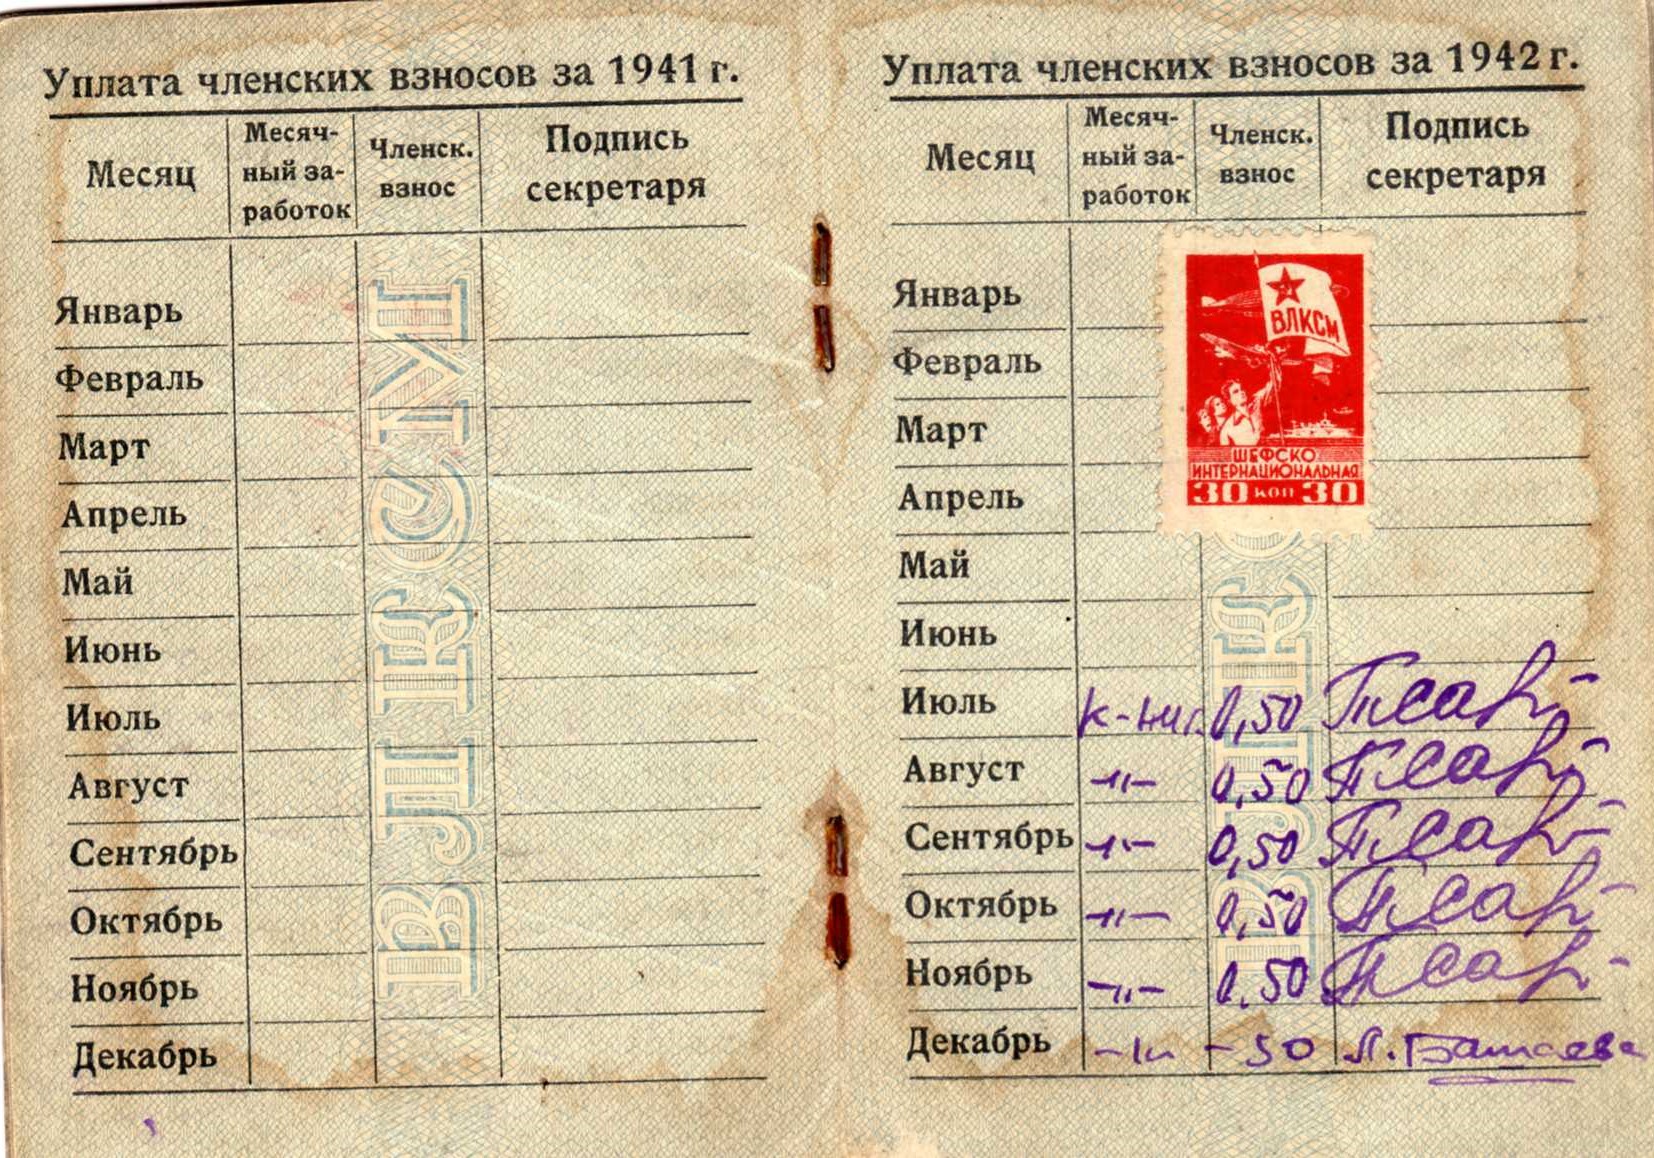 Уплата членских взносов за 1941 г.
Месяц
Месяч-
ный за-
работок
Членск.
взнос
Подпись
секретаря
Январь
Февраль
Март
Апрель
Май
Июнь
Июль
Август
Сентябрь
Октябрь
Ноябрь
Декабрь
ВЛКСМ
Уплата членских взносов за 1942 г.
Месяц
Месяч-
ный за-
работок
Членск.
взнос
Подпись
секретаря
ВЛКСМ
ШЕФСКО
ИНТЕРНАЦИОНАЛЬНАЯ
30 коп 30
Январь
Февраль
Март
Апрель
Май
Июнь
Июль 0,50
Август -"- 0,50
Сентябрь -"- 0,50
Октябрь -"- 0,50
Ноябрь -"- 0.50
Декабрь -"- -50